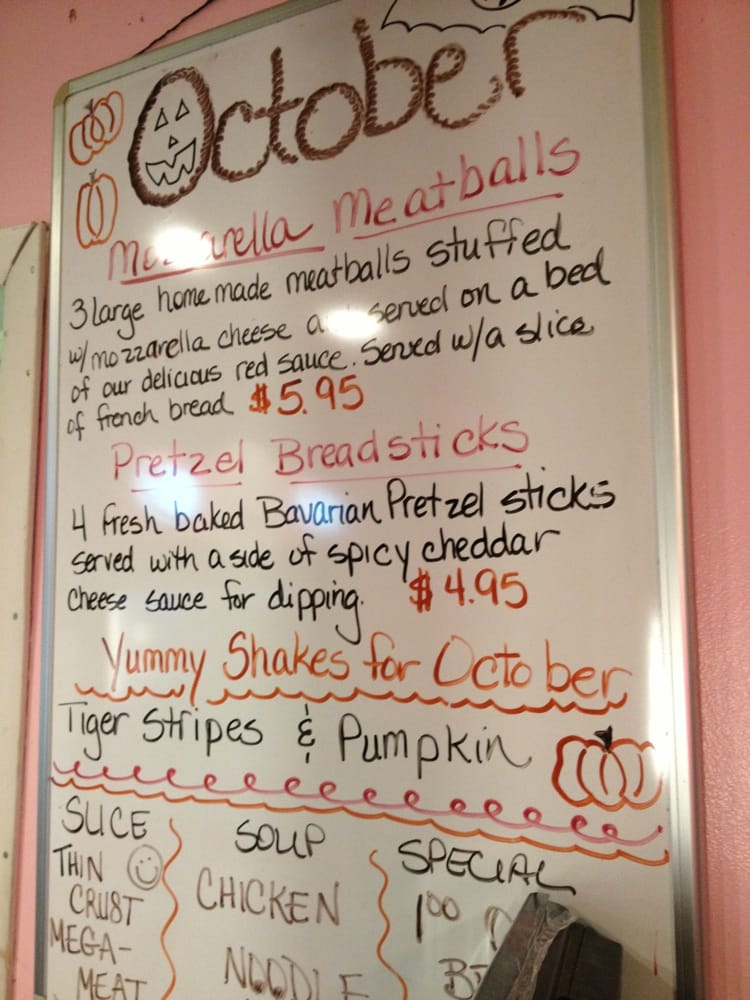 October
Mozzarella Meatballs
3 large homemade meatballs stuffed
w/mozzarella cheese and served on a bed
of our delicious red sauce. Served w/a slice
of french bread $5.95
Pretzel Breadsticks
4 fresh baked Bavarian Pretzel sticks
served with a side of spicy cheddar
cheese sauce for dipping. $4.95
Yummy Shakes for October
Tiger Stripes & Pumpkin
SLICE
THIN
CRUST
MEGA-
MEAT
SOUP
CHICKEN
NOODLE
SPECIAL
1⁰⁰